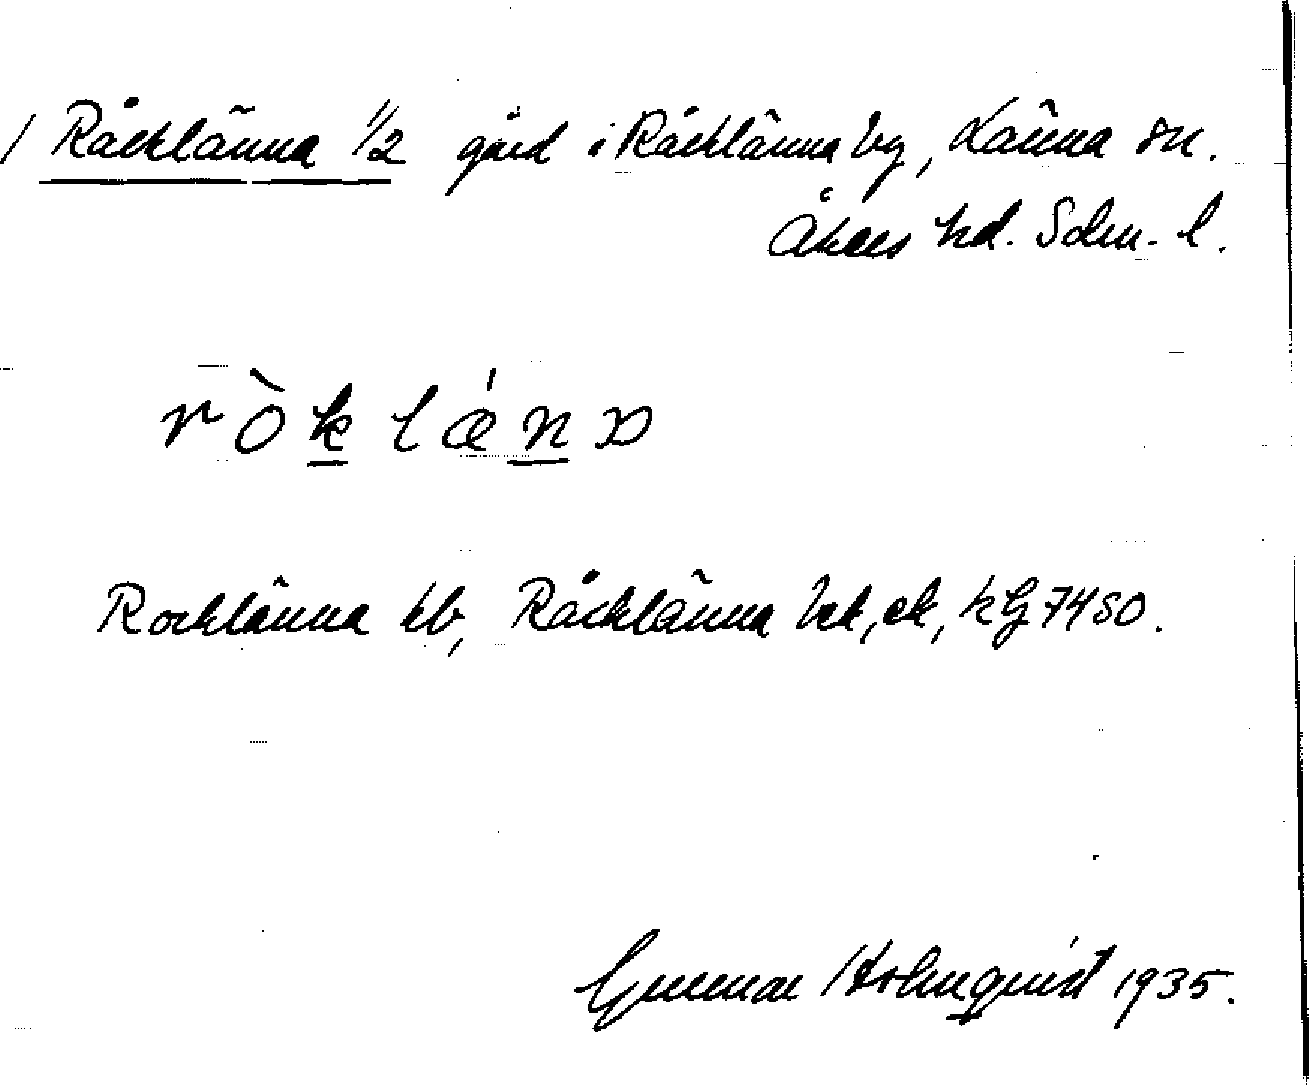 / Råcklänna 1/2 gård i Råcklänna by, Länna sn.
Åkers hd. Södm. l.
ròklǽnɒ
Rocklänna kb, Råcklänna hk, ek, kG 7450.
Gunnar Holmquist 1935.